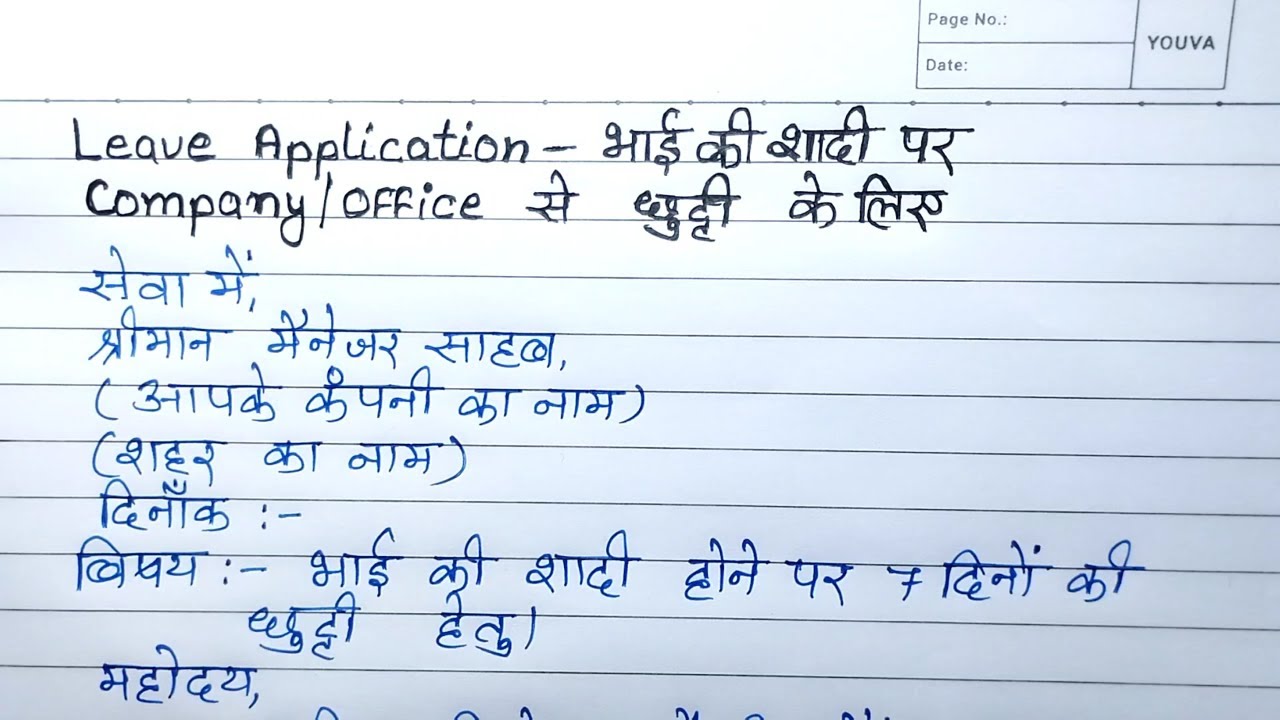 Page No.:
YOUVA
Date:
Leave Application - भाई की शादी पर
Company/Office से छुट्टी के लिए
सेवा में,
श्रीमान मैनेजर साहब,
(आपके कंपनी का नाम)
(शहर का नाम)
दिनाँक :-
बिषय :- भाई की शादी होने पर 7 दिनों की
छुट्टी हेतु।
महोदय,